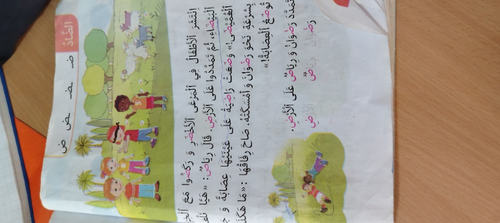 الضّادُ
ضـ ـضـ ـض ض
اِنْتَشَرَ الْأَطْفَالُ فِي الْمَرْعَى الْأَخْضَرِ وَ رَكَضُوا مَعَ
الْبَيْضَاءِ، ثُمَّ تَمَدَّدُوا عَلَى الْأَرْضِ. قَالَ رِيَاضٌ: «هَيَّا
الْغُمَّيْضَى!» وَضَعَتْ رَاضِيَةُ عَلَى عَيْنَيْهَا عِصَابَةً وَ
بِسُرْعَةٍ نَحْوَ رِضْوَانَ وَ أَمْسَكَتْهُ. صَاحَ رِفَاقُهَا: «مَا هَكَذَا
تُوضَعُ الْعِصَابَةُ!»
تَمَدَّدَ رِضْوَانُ وَ رِيَاضٌ عَلَى الْأَرْضِ.
رِضْوَانُ رِيَاضٌ الْأَرْضِ
ض ض ض